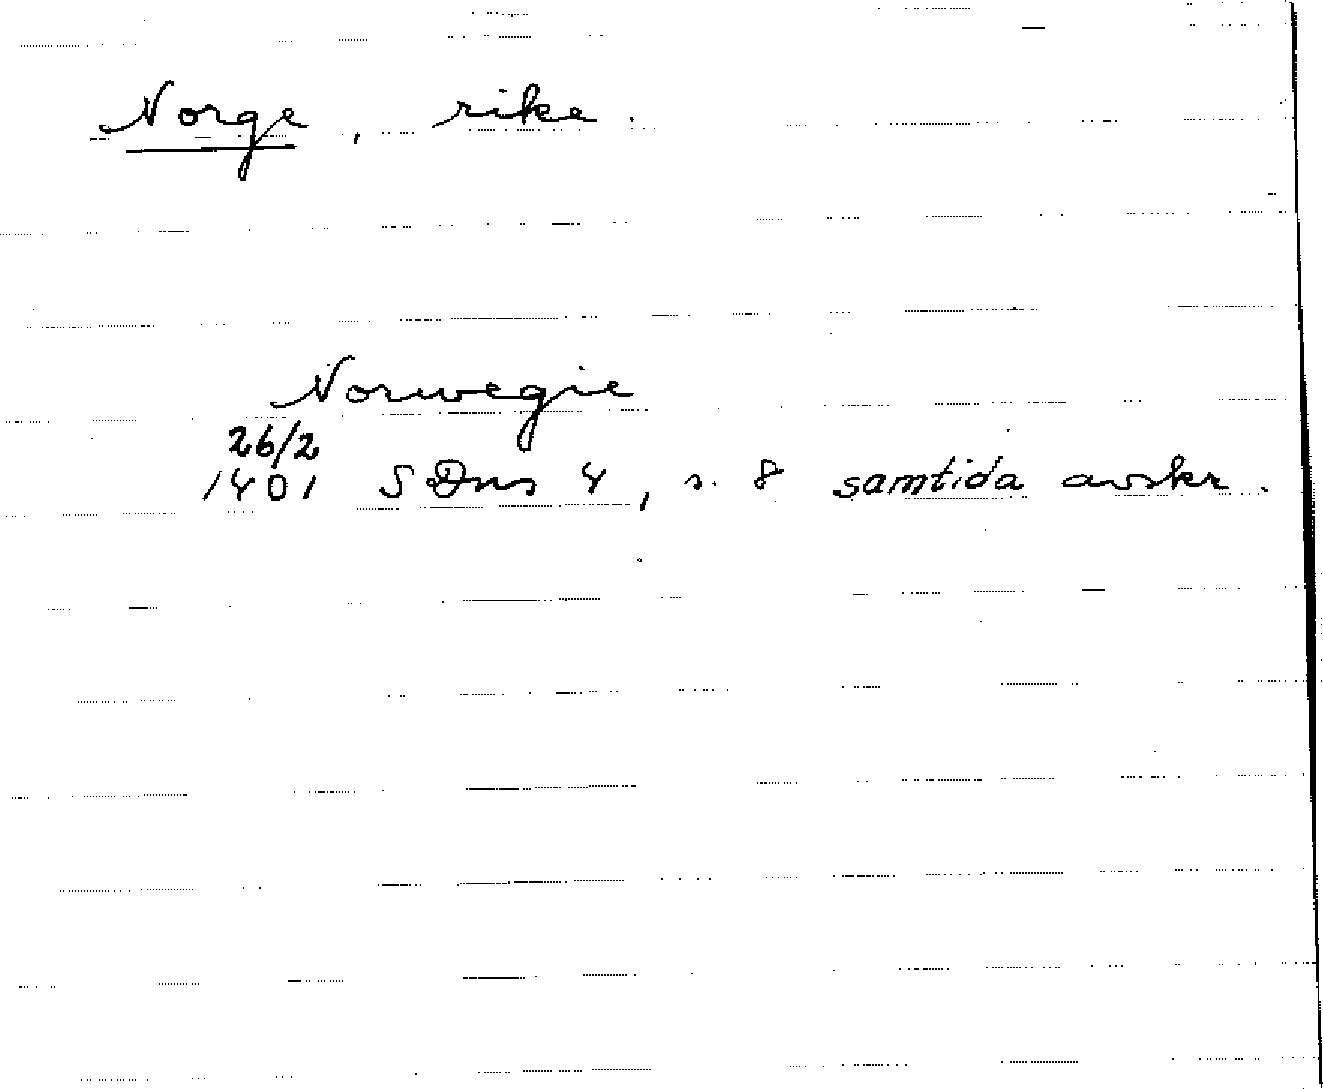 Norge, rike.
Norwegie
26/2
1401 SDns 4, s. 8 samtida avskr.